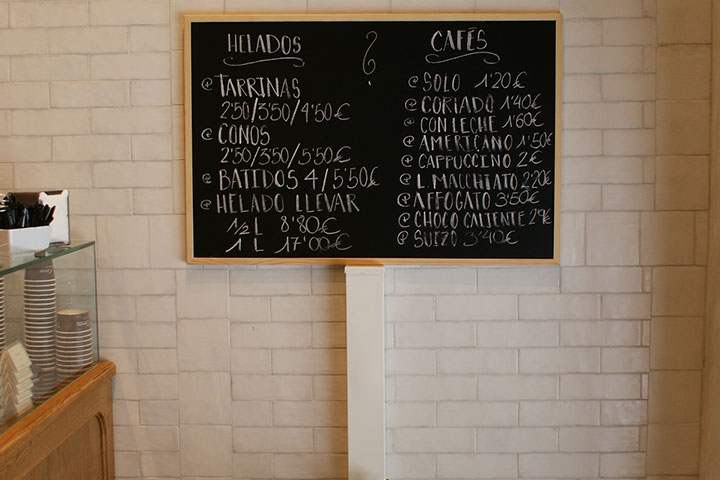 HELADOS
@ TARRINAS
2'50/3'50/4'50€
@ CONOS
2'50/3'50/5'50€
@ BATIDOS 4/5'50€
@ HELADO LLEVAR
1/2 L 8'80€
1 L 17'00€
?
CAFÉS
@ SOLO 1'20€
@ CORTADO 1'40€
@ CON LECHE 1'60€
@ AMERICANO 1'50€
@ CAPPUCCINO 2€
@ L. MACCHIATO 2'20€
@ AFFOGATO 3'50€
@ CHOCO CALIENTE 2'9€
@ SUIZO 3'40€